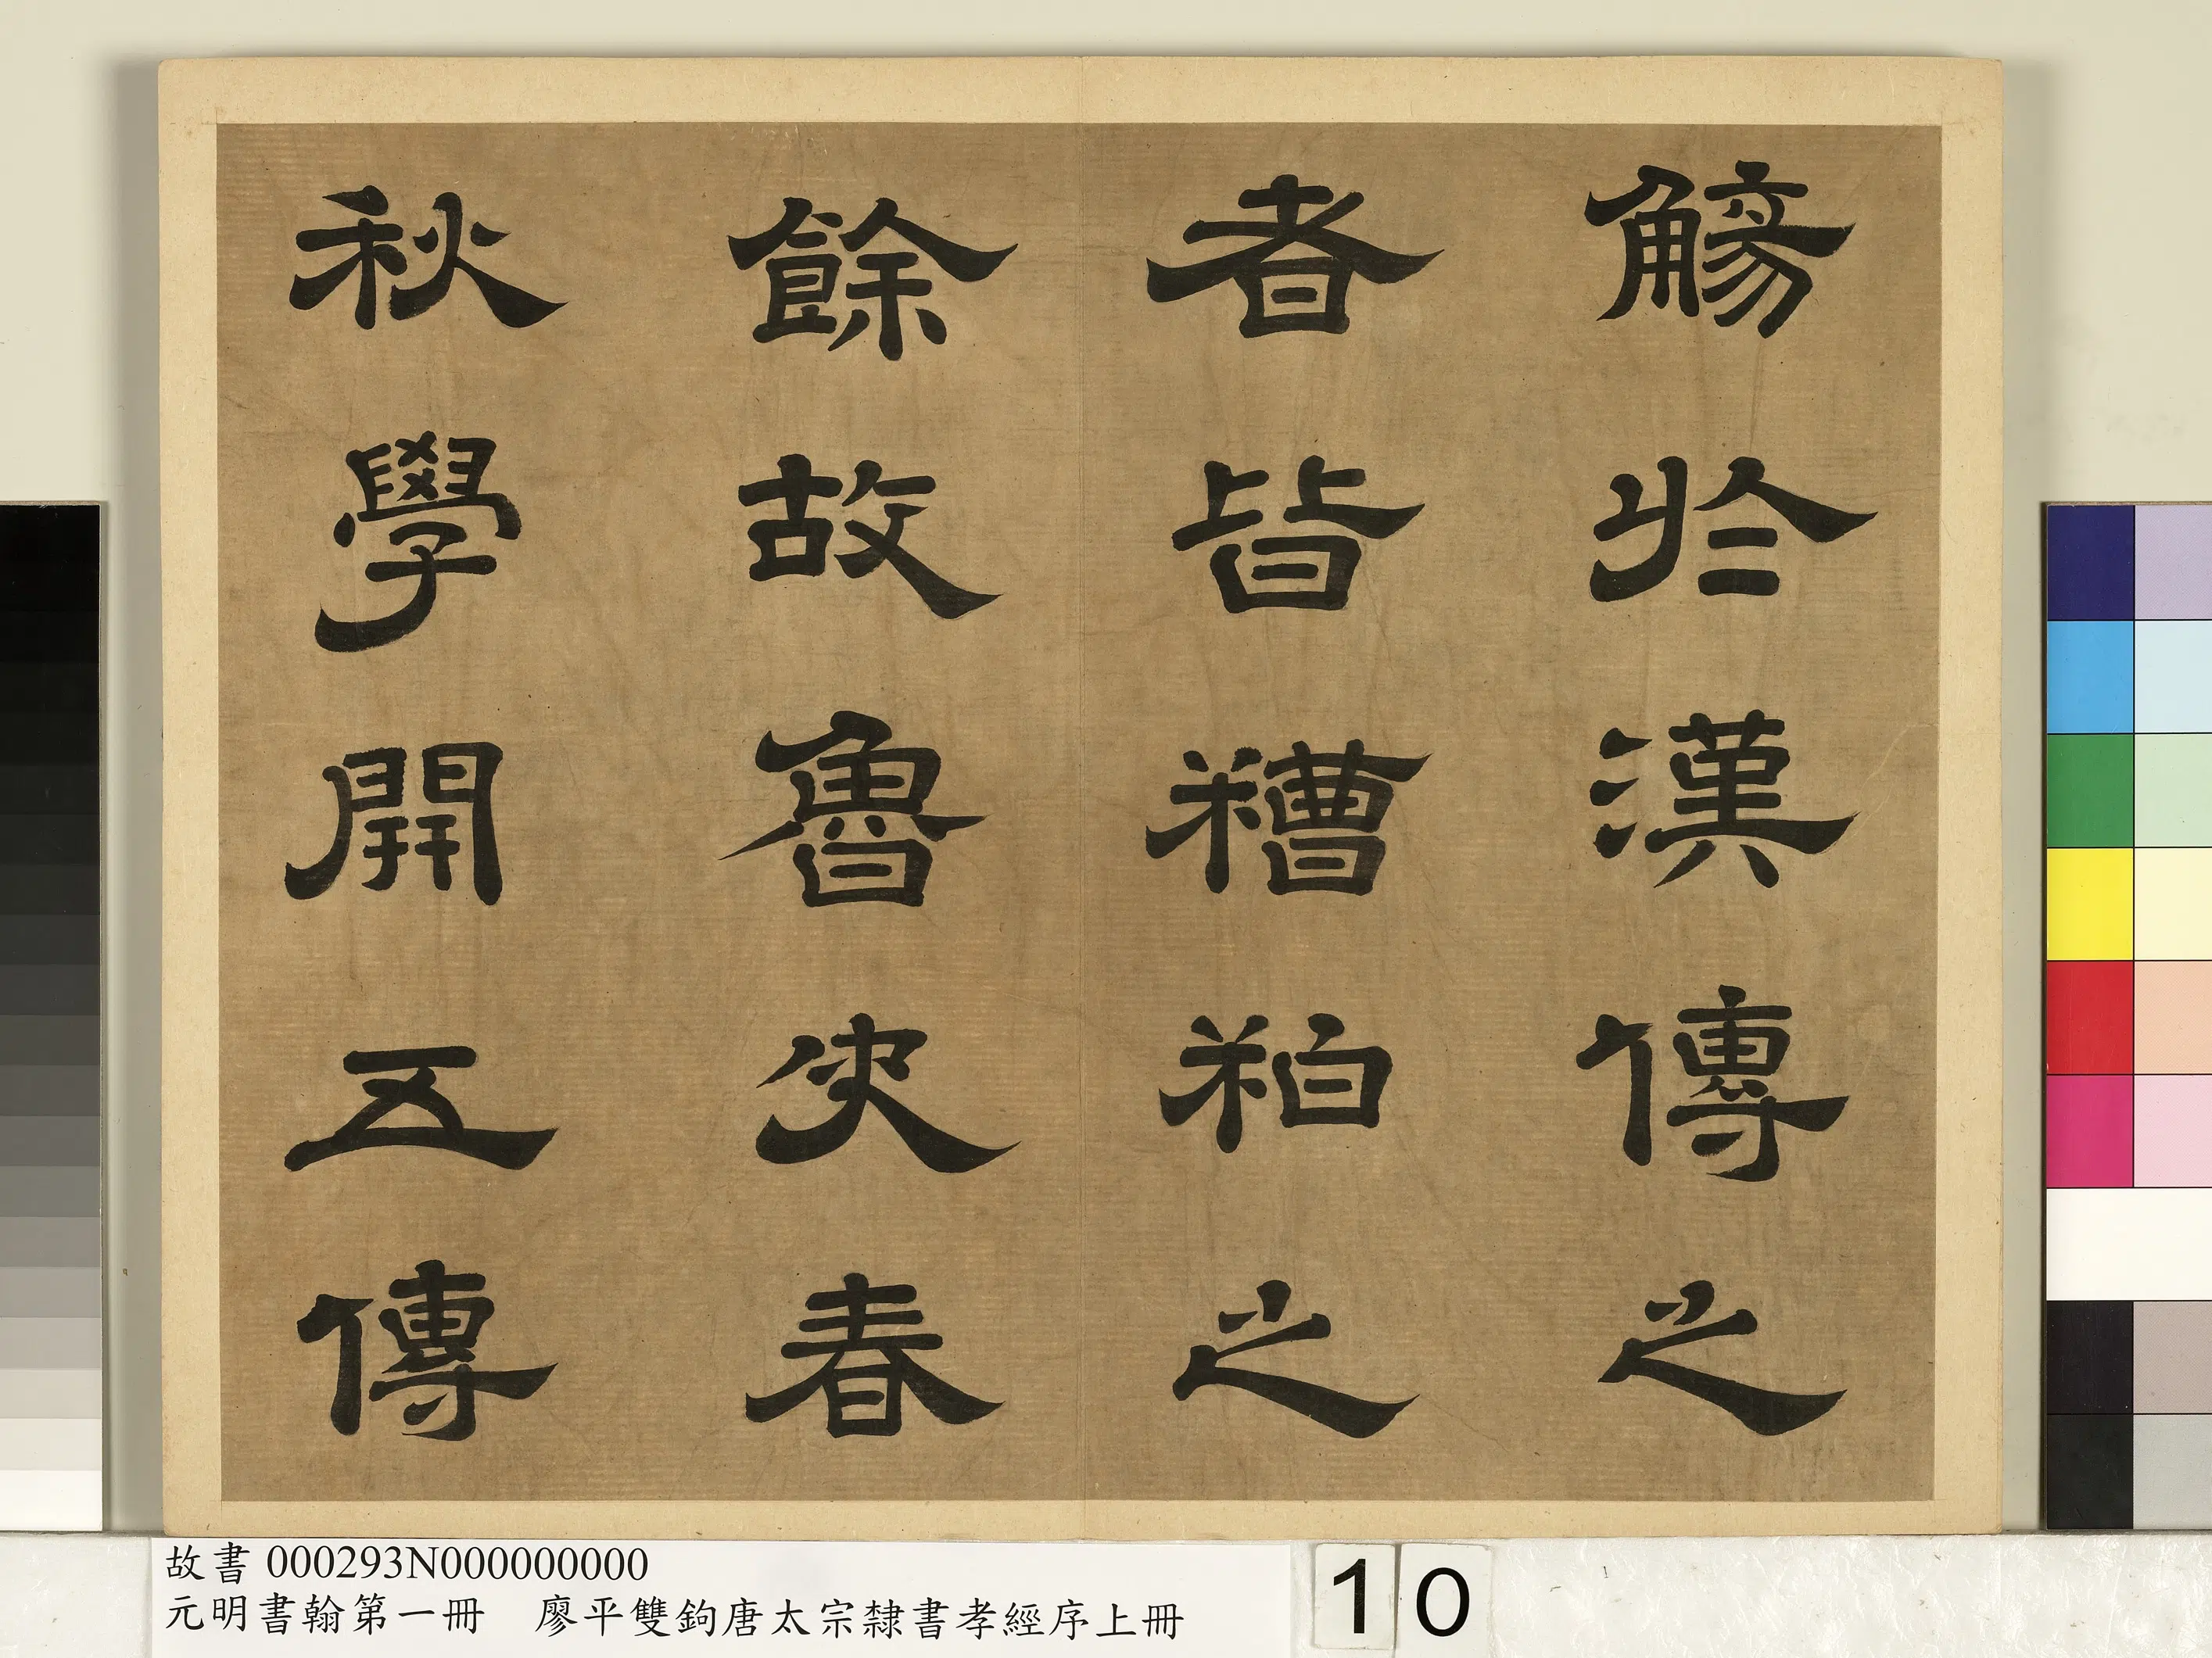 觴於漢傳之
者皆糟粕之
餘故魯史春
秋學開五傳
故書 000293N000000000
元明書翰第一冊 廖平雙鉤唐太宗隸書孝經序上冊
10